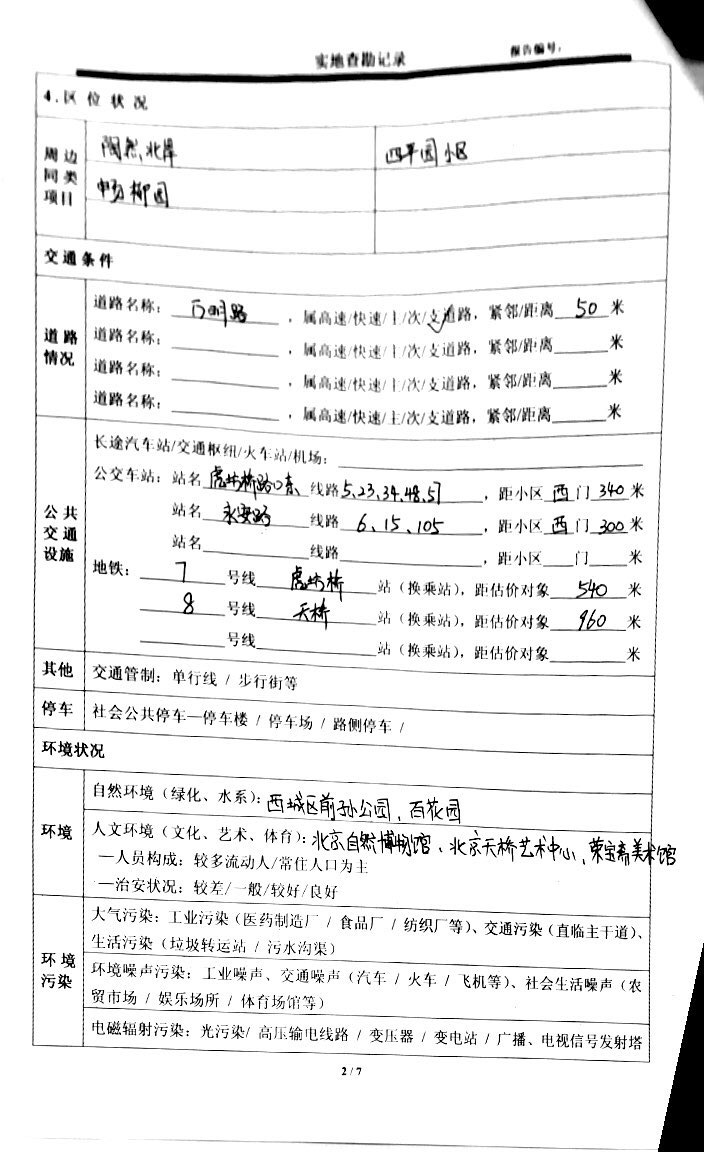 实地查勘记录
报告编号：
4.区位状况
周边同类项目
陶然北岸
四平园小区
畅柳园
交通条件
道路情况
道路名称：万明路，属高速/快速/主/次/支道路，紧邻/距离 50 米
道路名称：______，属高速/快速/主/次/支道路，紧邻/距离______米
道路名称：______，属高速/快速/主/次/支道路，紧邻/距离______米
道路名称：______，属高速/快速/主/次/支道路，紧邻/距离______米
公共交通设施
长途汽车站/交通枢纽/火车站/机场：______
公交车站：站名 虎坊桥路口东、线路 5、23、34、48、57，距小区 西 门 340 米
站名 永安路 线路 6、15、105，距小区 西 门 300 米
站名______线路______，距小区___门___米
地铁： 7 号线 虎坊桥 站（换乘站），距估价对象 540 米
8 号线 天桥 站（换乘站），距估价对象 960 米
______号线______站（换乘站），距估价对象______米
其他
交通管制：单行线 / 步行街等
停车
社会公共停车—停车楼 / 停车场 / 路侧停车 /
环境状况
环境
自然环境（绿化、水系）：西城区前孙公园、百花园
人文环境（文化、艺术、体育）：北京自然博物馆、北京天桥艺术中心、荣宝斋美术馆
—人员构成：较多流动人/常住人口为主
—治安状况：较差/一般/较好/良好
环境污染
大气污染：工业污染（医药制造厂 / 食品厂 / 纺织厂等）、交通污染（直临主干道）、
生活污染（垃圾转运站 / 污水沟渠）
环境噪声污染：工业噪声、交通噪声（汽车 / 火车 / 飞机等）、社会生活噪声（农
贸市场 / 娱乐场所 / 体育场馆等）
电磁辐射污染：光污染/ 高压输电线路 / 变压器 / 变电站 / 广播、电视信号发射塔
2 / 7